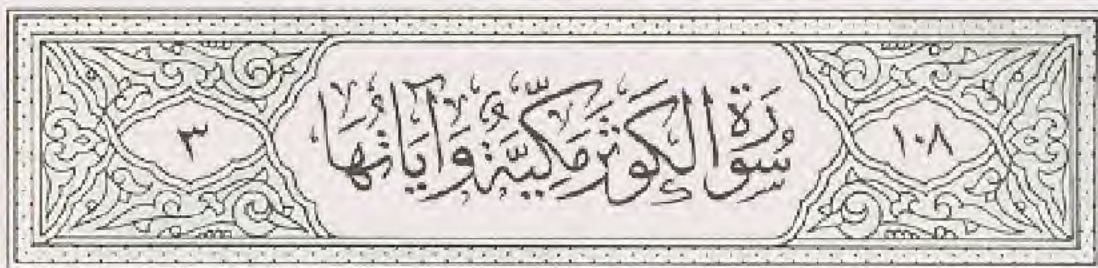 ١٠٨ سُورَةُ الْكَوْثَرِ مَكِّيَّةٌ وَآيَاتُهَا ٣